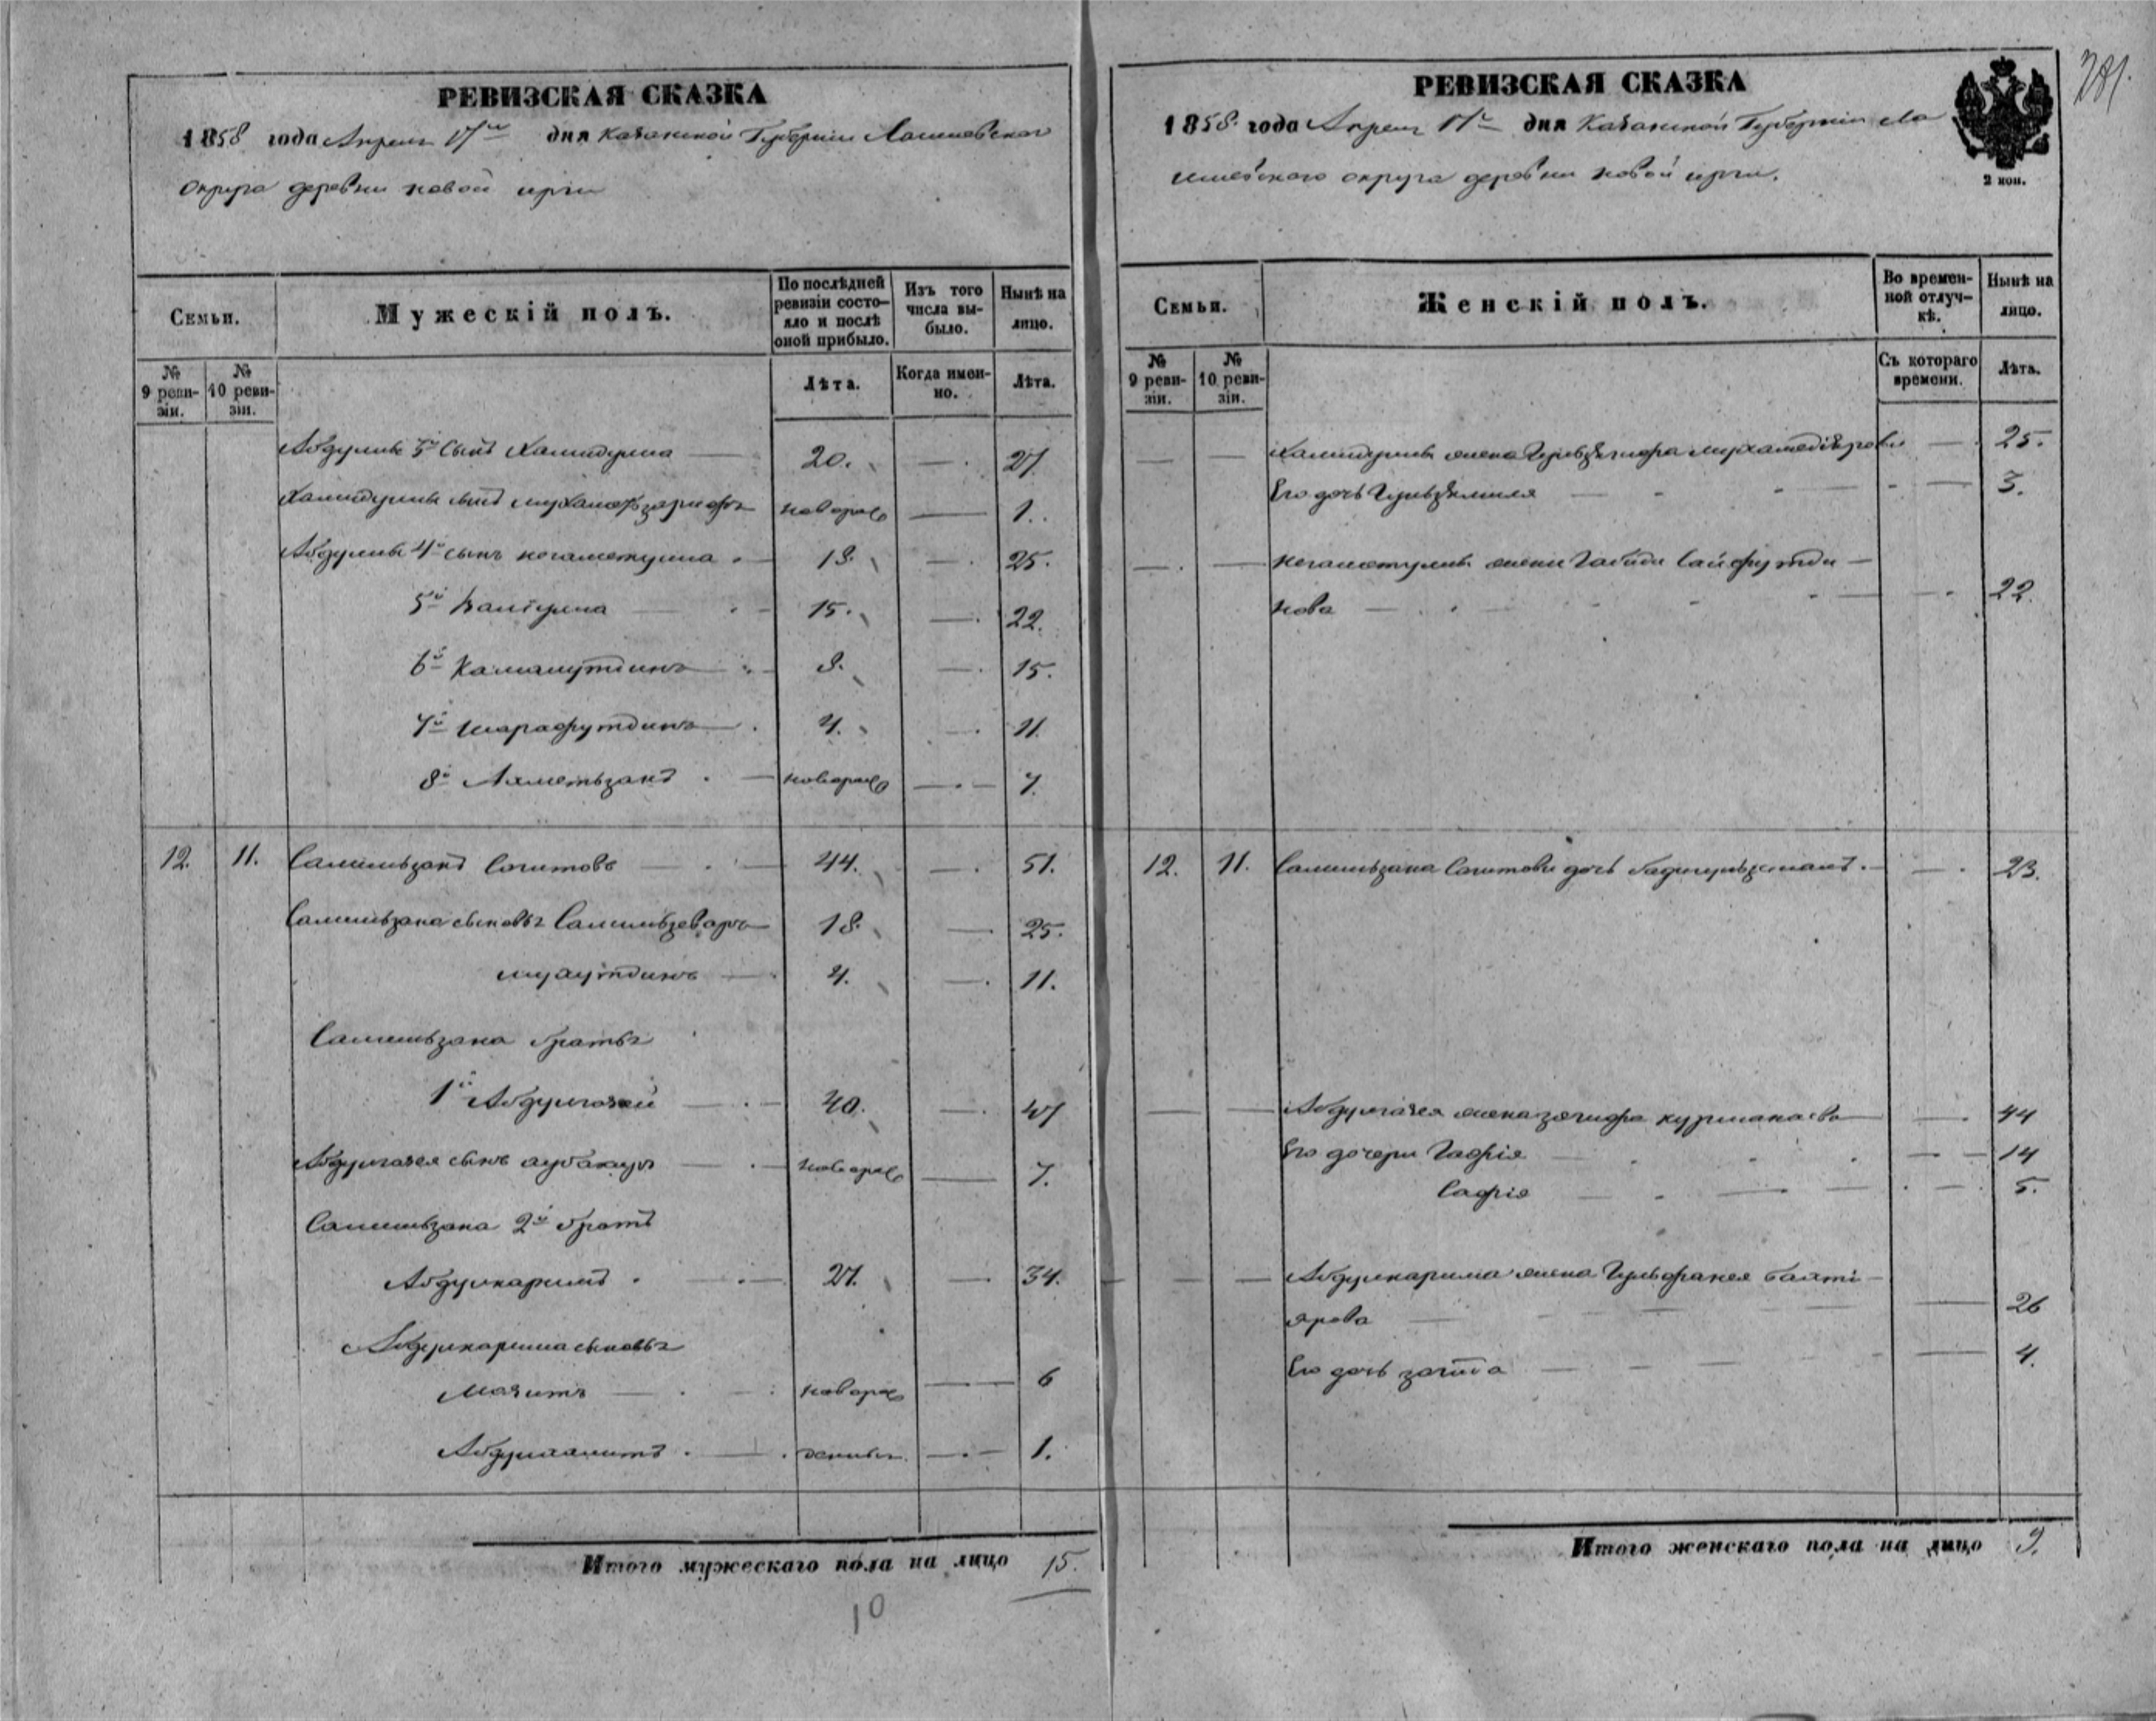 281.
РЕВИЗСКАЯ СКАЗКА
1858 года Апреля 17го дня Казанской Губернии Лаишевскаго
округа деревни новой
Семьи.
Мужескій полъ.
По послѣдней ревизіи состояло и послѣ оной прибыло.
Изъ того числа выбыло.
Нынѣ на лицо.
№ 9 ревизіи.
№ 10 ревизіи.
Лѣта.
Когда именно.
Лѣта.
Абдулы 3й сынъ Хамидулла 20. 27.
Хамидуллы сынъ новорож 1.
Абдулы 4й сынъ негаметулла 18. 25.
5й 15. 22.
6й Камалутдинъ 8. 15.
7й шарафутдинъ 4. 11.
8й Ахметьзанъ новорож 7.
12. 11. Салимьзанъ Сагитовъ 44. 51.
Салимьзана сыновья 18. 25.
4. 11.
Салимьзана братья
1й Абдулгазей 40. 47
Абдулгазея сынъ новорож 7.
Салимьзана 2й братъ
Абдулкаримъ 27. 34.
Абдулкарима сыновья
Мазитъ новорож 6
1.
Итого мужескаго пола на лицо 15.
10
РЕВИЗСКАЯ СКАЗКА
1858 года Апреля 17го дня Казанской Губернии Ла
ишевскаго округа деревни новой
2 коп.
Семьи.
Женскій полъ.
Во временной отлучкѣ.
Нынѣ на лицо.
№ 9 ревизіи.
№ 10 ревизіи.
Съ котораго времени.
Лѣта.
Хамидуллы жена 25.
Его дочь 3.
негаметуллы жена Сайфутди
нова 22.
12. 11. Салимьзана Сагитова дочь 23.
Абдулгазея жена курманаева 44
Его дочери Гафія 14
Сафія 5.
Абдулкарима жена бахті
ярова 26
Его дочь 4.
Итого женскаго пола на лицо 9.